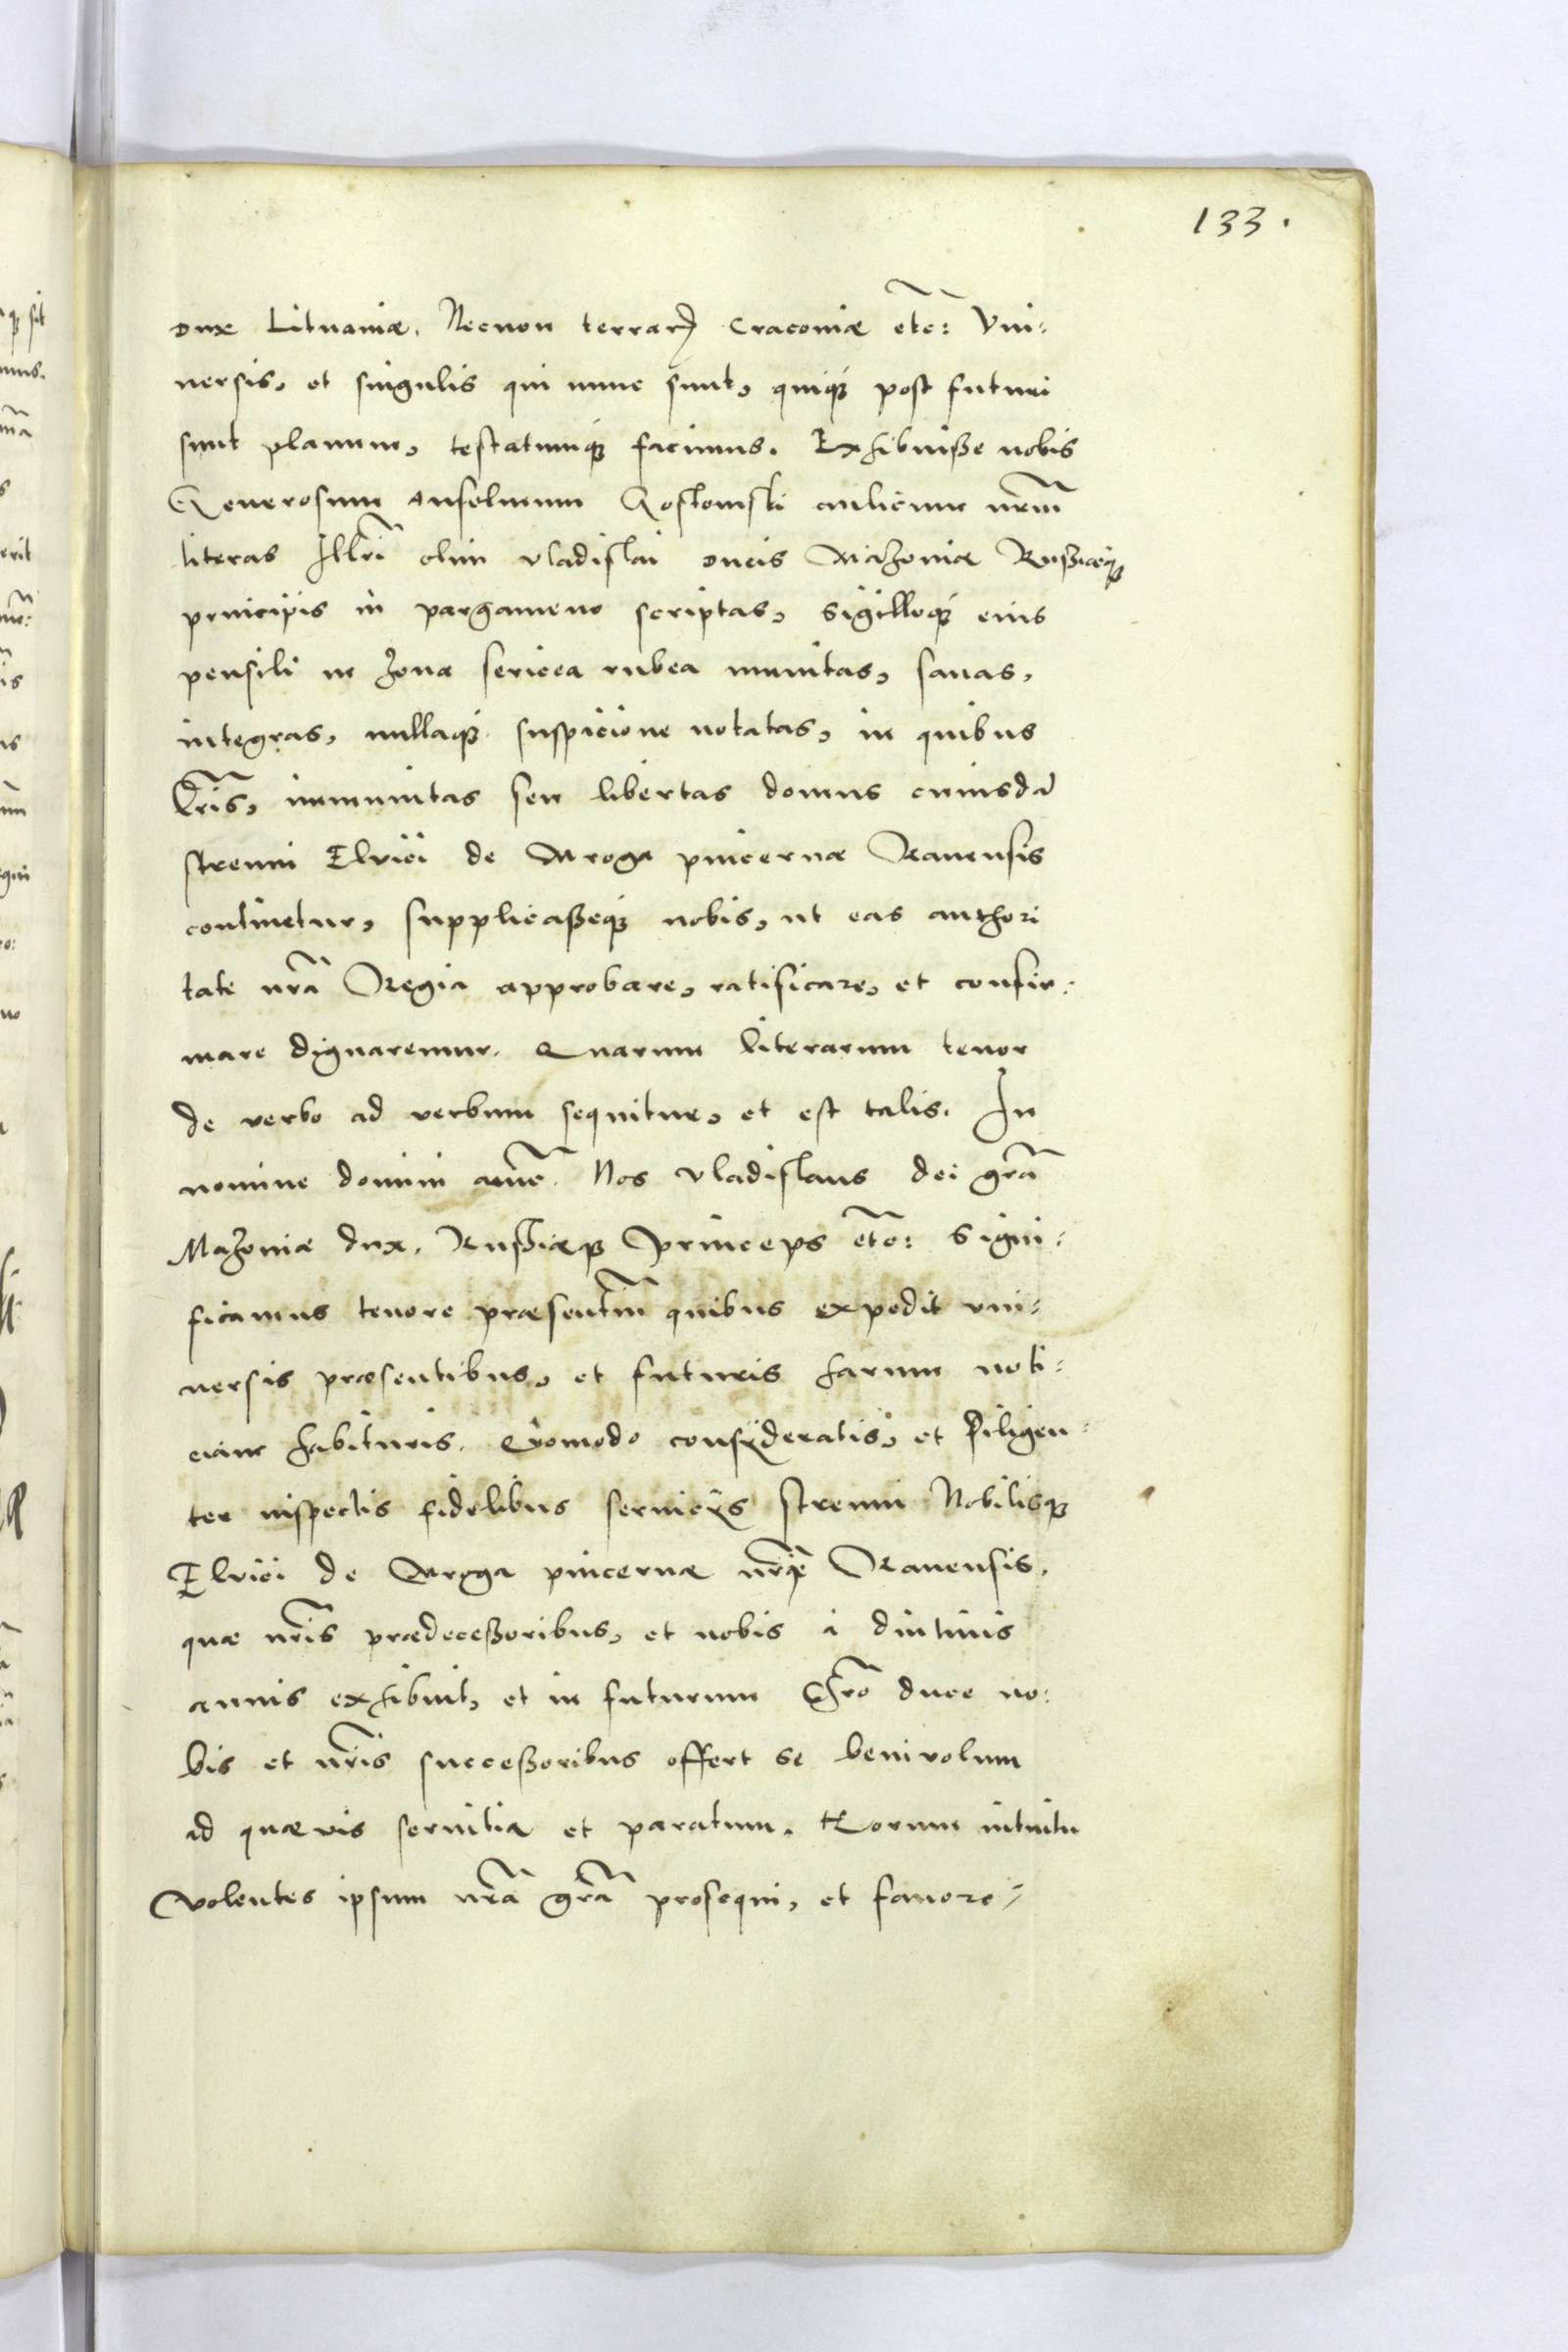 133.
dux Lituaniæ. Necnon terrarꝝ Cracouiæ etc̃: Vni-
uersis, et singulis qui nunc sunt, quiqꝫ post futuri
sunt planum, testatumqꝫ facimus. Exhibuiße nobis
Generosum Anselmum Gostomski aulicum nr̃m
literas Illr̃i olim Vladislai ducis Mazouiæ Rußiæqꝫ
principis in pargameno scriptas, Sigilloqꝫ eius
pensili in zona sericea rubea munitas, sanas,
integras, nullaqꝫ suspicione notatas, in quibus
immunitas seu libertas domus cuiusdã
strenui Elrici de Mroga pincernæ Rauensis
continetur, supplicaßeqꝫ nobis, ut eas authori
tate nr̃a Regia approbare, ratificare, et confir:
mare dignaremur. Quarum literarum tenor
de verbo ad verbum sequitur, et est talis. In
nomine domini amẽ. Nos Vladislaus dei gr̃a
Mazouiæ dux. Rußiæqꝫ Princeps etc̃: Signi:
ficamus tenore præsentiũ quibus expedit vni-
uersis præsentibus, et futuris harum noti-
ciam habituris. Quomodo consyderatis, et diligen-
ter inspectis fidelibus seruicijs strenui Nobilisqꝫ
Elrici de Mroga pincernæ nr̃i Rauensis,
quæ nr̃is prædeceßoribus, et nobis a diutinis
annis exhibuit, et in futurum Chr̃o duce no:
bis et nr̃is succeßoribus offert se beniuolum
ad quæuis seruitia et paratum. Horum intuitu
volentes ipsum nr̃a gr̃a prosequi, et fauore